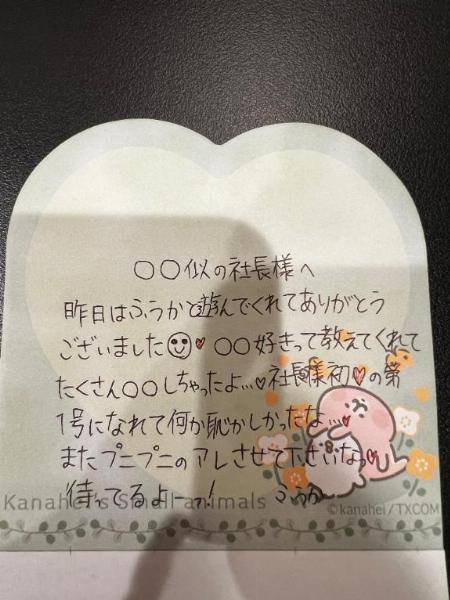 ○○似の社長様へ
昨日はふうかと遊んでくれてありがとう
ございました♥ ○○好きって教えてくれて
たくさん○○しちゃったよ…♥社長様初♥の第
1号になれて何か恥かしかったな…♥
またプニプニのアレさせて下さいなっ♥
待ってるよーっ! ふうか
Kanahei's Small animals
©kanahei/TXCOM